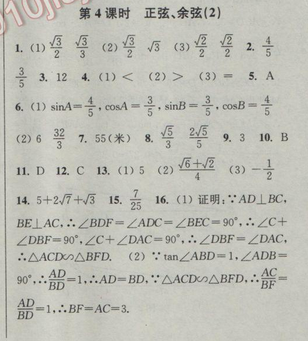 第 4 课时 正弦、余弦(2)
1. (1) √3/2 √3/3 (2) √3/2 √3 (3) √2/2 √2/2 2. 4/5
3/5 3. 12 4. (1) < (2) > (3) = 5. A
6. (1) sinA=4/5, cosA=3/5, sinB=3/5, cosB=4/5
(2) 6 32/3 7. 55(米) 8. √5/3 2√5/5 9. 3 10. B
11. D 12. C 13. (1) 5 (2) (√6+√2)/4 (3) -1/2
14. 5+2√7+√3 15. 7/25 16. (1) 证明:∵AD⊥BC,
BE⊥AC,∴∠BDF=∠ADC=∠BEC=90°,∴∠C+
∠DBF=90°,∠C+∠DAC=90°,∴∠DBF=∠DAC,
∴△ACD∽△BFD. (2) ∵tan∠ABD=1,∠ADB=
90°,∴AD/BD=1,∴AD=BD,∵△ACD∽△BFD,∴AC/BF=
AD/BD=1,∴BF=AC=3.